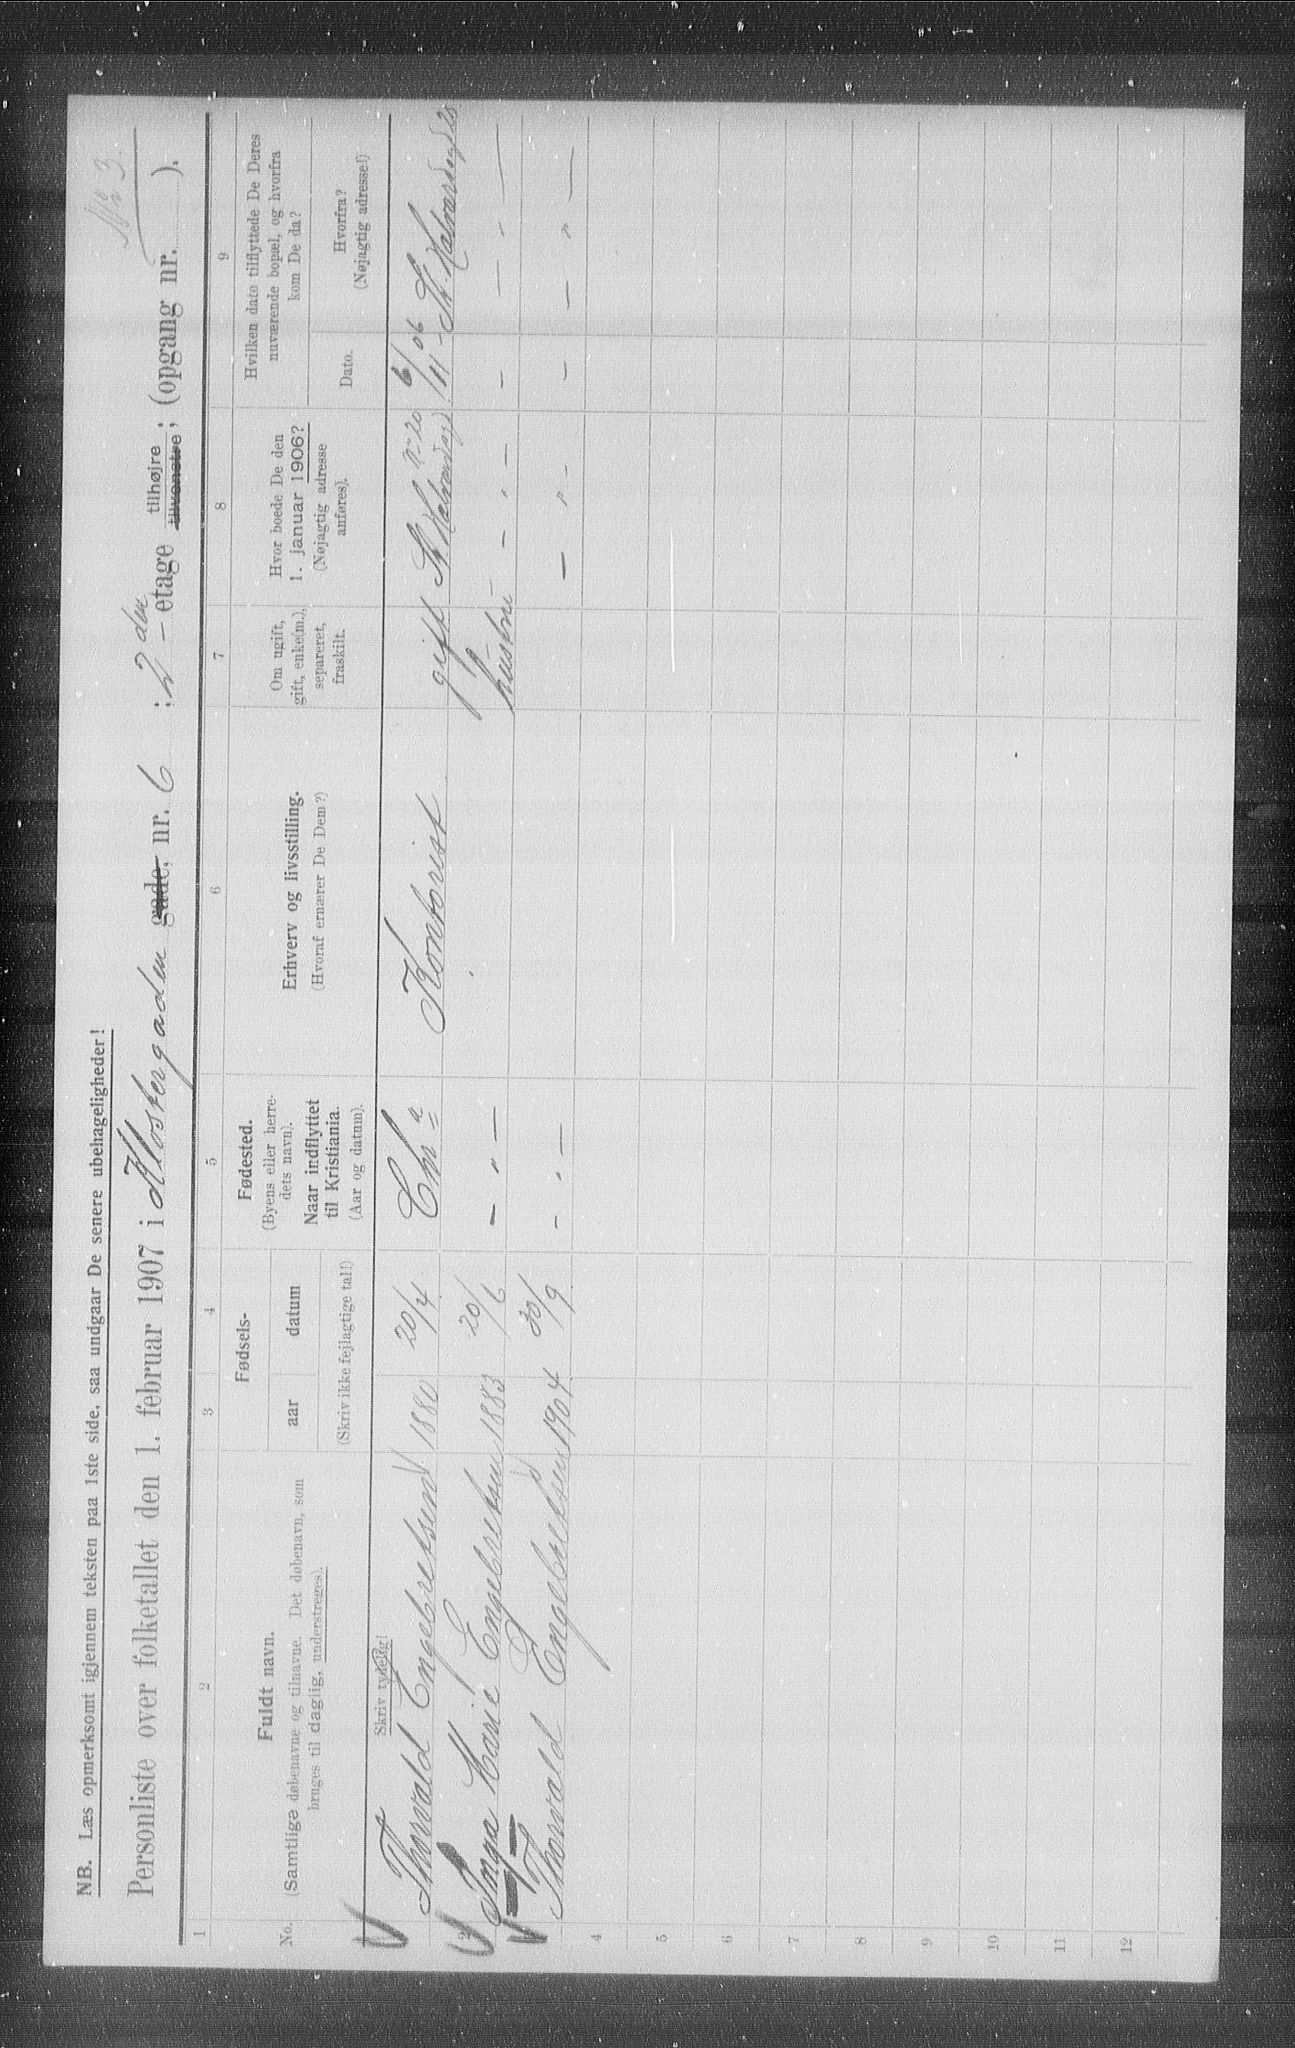 № 3.
NB. Læs opmerksomt igjennem teksten paa 1ste side, saa undgaar De senere ubehageligheder!
Personliste over folketallet den 1. februar 1907 i Klostergaden gade, nr. 6 ; 2 den - etage tilhøjre tilvenstre ; (opgang nr. ).
1 2 3 4 5 6 7 8 9
No.
Fuldt navn.
(Samtlige døbenavne og tilnavne. Det døbenavn, som
bruges til daglig, understreges).
Skriv tydelig!
Fødsels-
aar datum
(Skriv ikke fejlagtige tal!)
Fødested.
(Byens eller herre-
dets navn).
Naar indflyttet
til Kristiania.
(Aar og datum).
Erhverv og livsstilling.
(Hvoraf ernærer De Dem?)
Om ugift,
gift, enke(m.),
separeret,
fraskilt.
Hvor boede De den
1. januar 1906?
(Nøjagtig adresse
anføres).
Hvilken dato tilflyttede De Deres
nuværende bopæl, og hvorfra
kom De da?
Dato.
Hvorfra?
(Nøjagtig adresse!)
Thorvald Engebretsen 1880 20/4 Chr a Kontorist gift St. Halvardsgd No 20 6/11 06 St. Halvardsgd 20
2 Inga Marie Engebretsen 1883 20/6 - " - hustru - " - - - " -
Thorvald Engebretsen 1904 30/9 - " - - " - - - " -
4
5
6
7
8
9
10
11
12